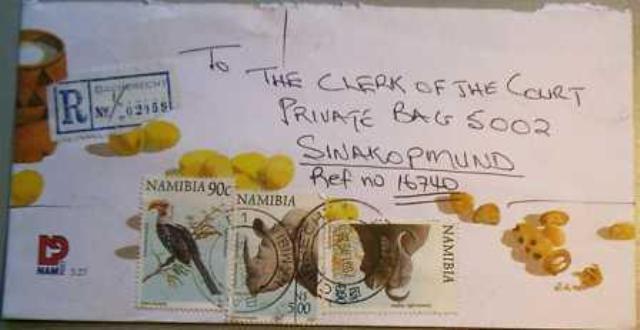 To
THE CLERK OF THE COURT
PRIVATE BAG 5002
SINAKOPMUND
Ref no 16740
R
No
NAMIBIA 90c
NAMIBIA
N$
5.00
NAMIBIA
NAM